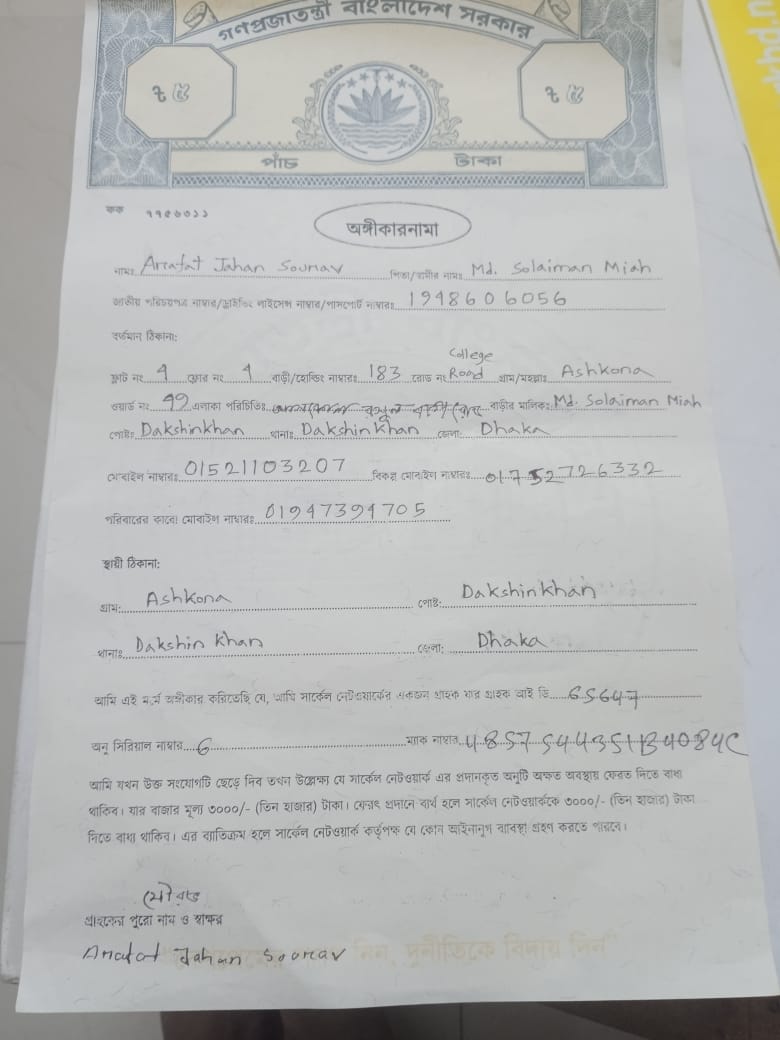 গণপ্রজাতন্ত্রী বাংলাদেশ সরকার
৳ ৫ ৳ ৫
পাঁচ টাকা
কক ৭৭৫৬০১১
অঙ্গীকারনামা
নামঃ Arafat Jahan Sourav পিতা/স্বামীর নামঃ Md. Solaiman Miah
জাতীয় পরিচয়পত্র নাম্বার/ড্রাইভিং লাইসেন্স নাম্বার/পাসপোর্ট নাম্বারঃ 1948606056
বর্তমান ঠিকানা:
ফ্ল্যাট নং 4 ফ্লোর নং 1 বাড়ী/হোল্ডিং নাম্বারঃ 183 রোড নং College Road গ্রাম/মহল্লাঃ Ashkona
ওয়ার্ড নং 49 এলাকা পরিচিতিঃ বাড়ীর মালিকঃ Md. Solaiman Miah
পোষ্টঃ Dakshinkhan থানাঃ Dakshin Khan জেলা: Dhaka
মোবাইল নাম্বারঃ 01521103207 বিকল্প মোবাইল নাম্বারঃ 01752726332
পরিবারের কারো মোবাইল নাম্বারঃ 01947394705
স্থায়ী ঠিকানা:
গ্রাম: Ashkona পোষ্ট: Dakshinkhan
থানাঃ Dakshin Khan জেলা: Dhaka
আমি এই মর্মে অঙ্গীকার করিতেছি যে, আমি সার্কেল নেটওয়ার্কের একজন গ্রাহক যার গ্রাহক আই ডি 65647
অনু সিরিয়াল নাম্বার 6 ম্যাক নাম্বার 48575443511B4084C
আমি যখন উক্ত সংযোগটি ছেড়ে দিব তখন উল্লেক্ষ্য যে সার্কেল নেটওয়ার্ক এর প্রদানকৃত অনুটি অক্ষত অবস্থায় ফেরত দিতে বাধ্য
থাকিব। যার বাজার মূল্য ৩০০০/- (তিন হাজার) টাকা। ফেরৎ প্রদানে ব্যর্থ হলে সার্কেল নেটওয়ার্ককে ৩০০০/- (তিন হাজার) টাকা
দিতে বাধ্য থাকিব। এর ব্যতিক্রম হলে সার্কেল নেটওয়ার্ক কর্তৃপক্ষ যে কোন আইনানুগ ব্যবস্থা গ্রহণ করতে পারবে।
সৌরভ
গ্রাহকের পুরো নাম ও স্বাক্ষর
Arafat Jahan Sourav
নিন, দুর্নীতিকে বিদায় দিন